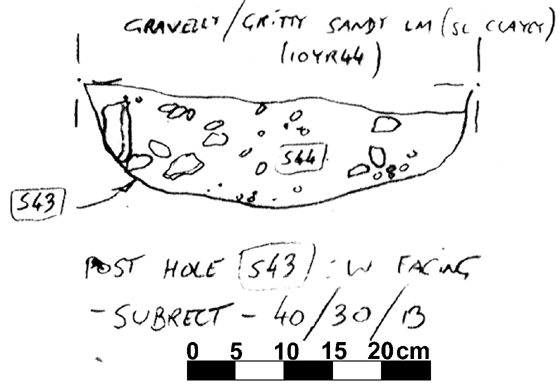 GRAVELLY/GRITTY SANDY LM (SL CLAYEY)
(10YR44)
S44
S43
POST HOLE S43 : W FACING
- SUBRECT - 40/30/13
0 5 10 15 20 cm